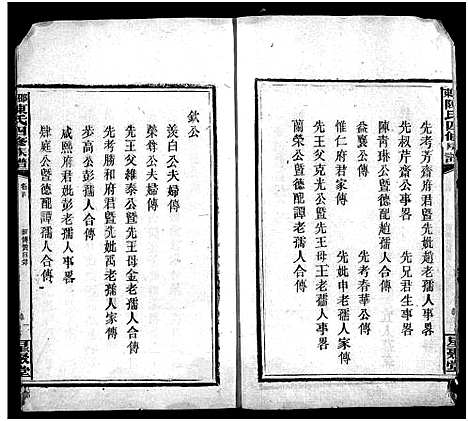 陳氏四修族譜
先考芳齋府君暨先妣趙老孺人事畧
先叔芹齋公事畧　先兄君生事畧
陳青翊公暨德配趙孺人合傳
益襄公傳　先考春華公傳
惟仁府君家傳　先妣申老孺人家傳
先王父克先公暨先王母王老孺人事畧
蘭榮公暨德配譚老孺人合傳
星聚堂
欽公
羨白公夫婦傳
榮耕公夫婦傳
先王父維泰公暨先王母金老孺人合傳
先考勝和府君暨先妣禹老孺人家傳
步高公彭孺人合傳
咸熙府君妣彭老孺人事畧
肄庭公暨德配譚孺人合傳
陳氏四修族譜
卷首
星聚堂